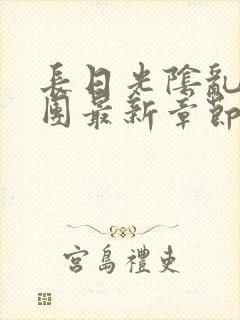 長日光陰亂
團最新章節
宮島禮吏